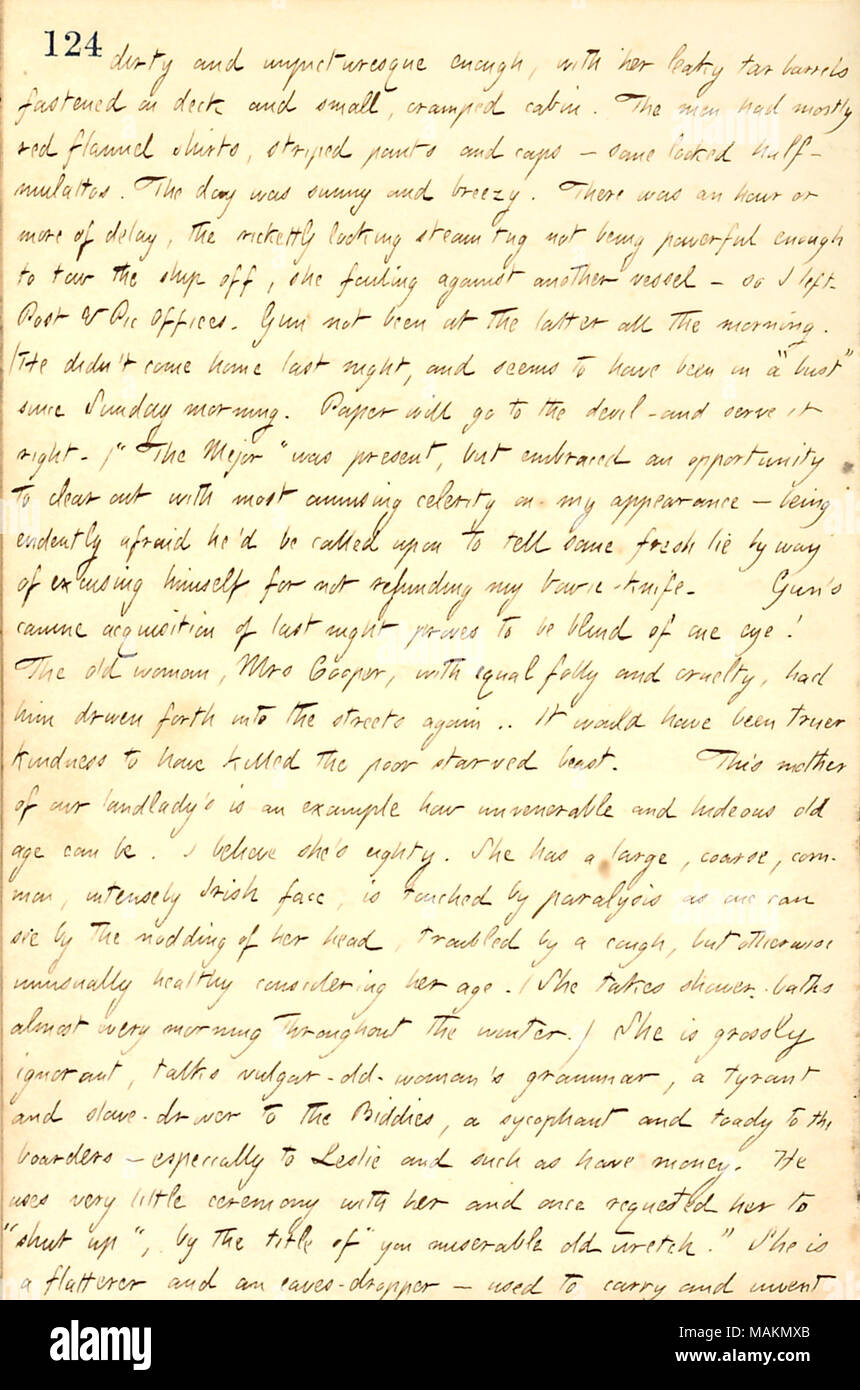 124
dirty and unpicturesque enough, with her leaky tar barrels
fastened on deck and small, cramped cabin. The men had mostly
red flannel shirts, striped pants and caps — some looked half-
mulattos. The day was sunny and breezy. There was an hour or
more of delay, the ricketty looking steam tug not being powerful enough
to tow the ship off, she fouling against another vessel — so I left.
Post & Pic Offices. Gun not been at the latter all the morning.
(He didn't come home last night, and seems to have been on a "bust"
since Sunday morning. Paper will go to the devil — and serve it
right.) "The Mejor" was present, but embraced an opportunity
to clear out with most amusing celerity on my appearance — being
evidently afraid he'd be called upon to tell some fresh lie by way
of excusing himself for not refunding my bowie-knife. Gun's
canine acquisition of last night proves to be blind of one eye!
The old woman, Mrs Cooper, with equal folly and cruelty, had
him driven forth into the streets again .. It would have been truer
kindness to have killed the poor starved beast. This mother
of our landlady's is an example how unvenerable and hideous old
age can be. I believe she's eighty. She has a large, coarse, com-
mon, intensely Irish face, is touched by paralysis as one can
see by the nodding of her head, troubled by a cough, but otherwise
unusually healthy considering her age. (She takes shower-baths
almost every morning throughout the winter.) She is grossly
ignorant, talks vulgar-old-woman's grammar, a tyrant
and slave-driver to the Biddies, a sycophant and toady to the
boarders — especially to Leslie and such as have money. He
uses very little ceremony with her and once requested her to
"shut up", by the title of "you miserable old wretch." She is
a flatterer and an eaves-dropper — used to carry and invent
alamy
Image ID: MAKMXB
www.alamy.com